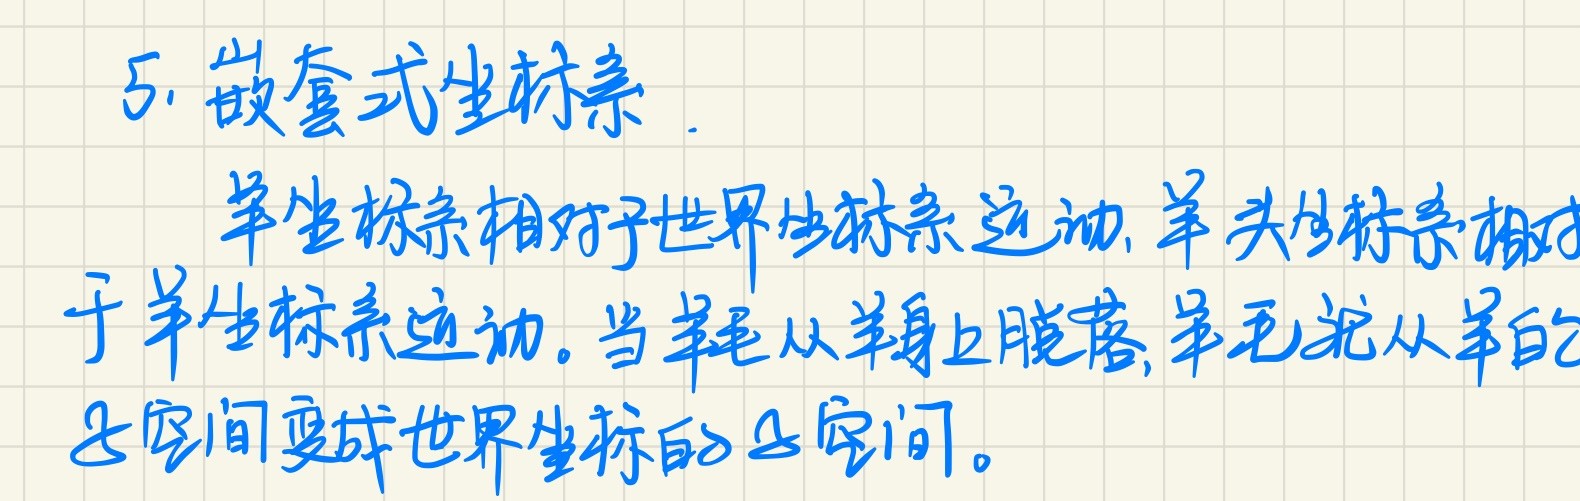 5. 嵌套式坐标系.
羊坐标系相对于世界坐标系运动,羊头坐标系相对
于羊坐标系运动。当羊毛从羊身上脱落,羊毛就从羊的
子空间变成世界坐标的子空间。